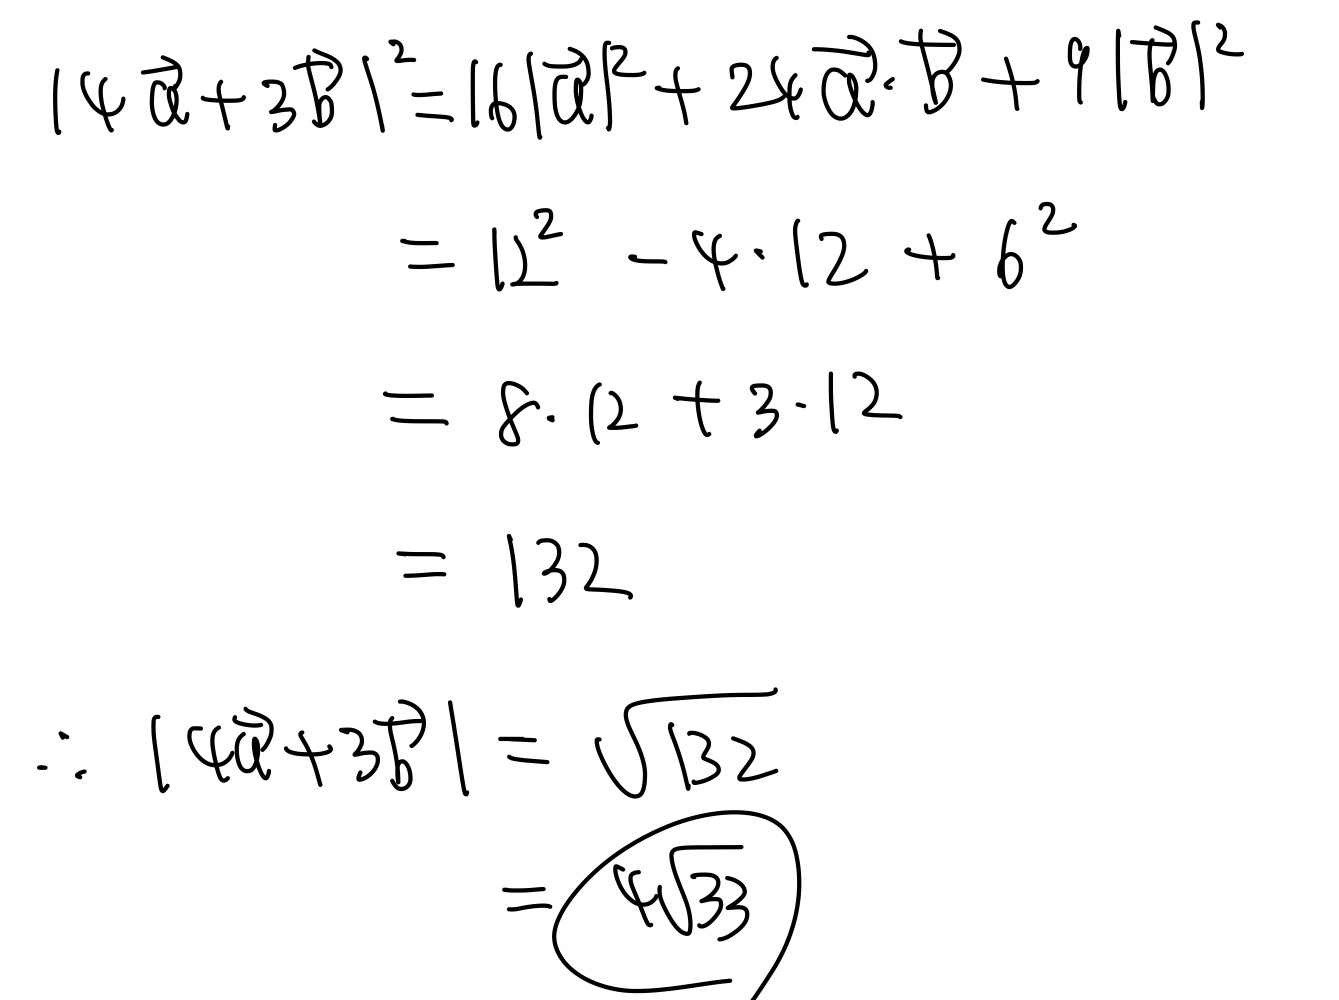 |4a⃗+3b⃗|²=16|a⃗|²+24a⃗·b⃗+9|b⃗|²
=12²-4·12+6²
=8·12+3·12
=132
∴|4a⃗+3b⃗|=√132
=4√33